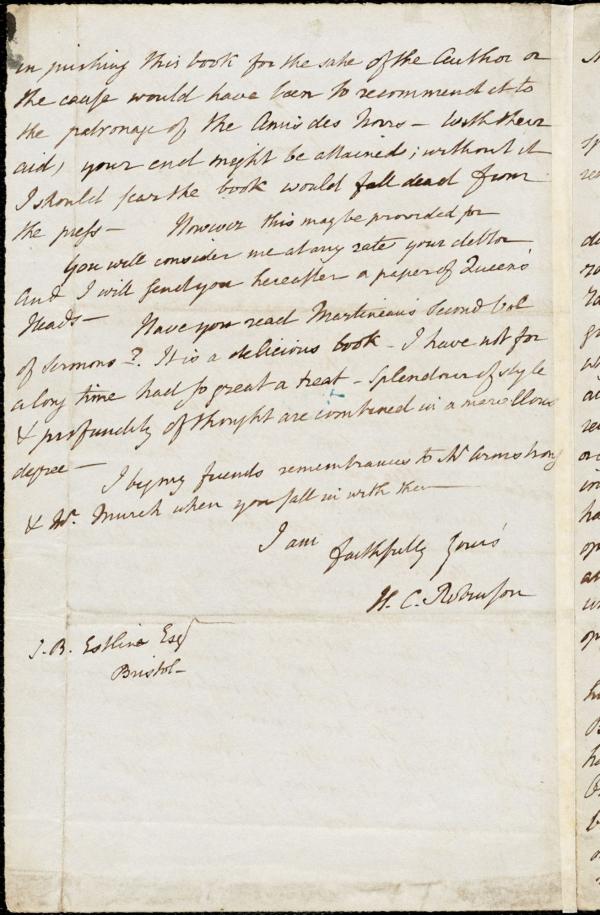 in pushing this book for the sake of the Author or
the cause would have been to recommend it to
the patronage of the Amis des Noirs – With their
aid, your end might be attained; without it
I should fear the book would fall dead from
the press – However this may be provided for
You will consider me at any rate your debtor
And I will send you hereafter a paper of Queens'
Heads – Have you read Martineau's second Vol
of Sermons –? It is a delicious book – I have not for
a long time had so great a treat – Splendour of style
& profundity of thought are combined in a marvellous
degree –
I beg my friends remembrances to Mr Armstrong
& Mr. Murch when you fall in with them
I am
faithfully Yours
H. C. Robinson
J. B. Estlin Esqr
Bristol –